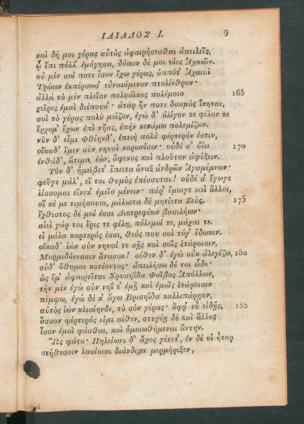 ΙΛΙΑΔΟΣ Ι. 9
καὶ δή μοι γέρας αὐτὸς ἀφαιρήσεσθαι ἀπειλεῖς,
ᾧ ἔπι πόλλ' ἐμόγησα, δόσαν δέ μοι υἷες Ἀχαιῶν.
οὐ μὲν σοί ποτε ἶσον ἔχω γέρας, ὁππότ' Ἀχαιοὶ
Τρώων ἐκπέρσωσ' εὐναιόμενον πτολίεθρον·
ἀλλὰ τὸ μὲν πλεῖον πολυάϊκος πολέμοιο 165
χεῖρες ἐμαὶ διέπουσ'· ἀτὰρ ἤν ποτε δασμὸς ἵκηται,
σοὶ τὸ γέρας πολὺ μεῖζον, ἐγὼ δ' ὀλίγον τε φίλον τε
ἔρχομ' ἔχων ἐπὶ νῆας, ἐπὴν κεκάμω πολεμίζων.
νῦν δ' εἶμι Φθίηνδ', ἐπειὴ πολὺ φέρτερόν ἐστιν,
οἴκαδ' ἴμεν σὺν νηυσὶ κορωνίσιν· οὐδέ σ' ὀΐω 170
ἐνθάδ', ἄτιμος ἐὼν, ἄφενος καὶ πλοῦτον ἀφύξειν.
Τὸν δ' ἠμείβετ' ἔπειτα ἄναξ ἀνδρῶν Ἀγαμέμνων·
φεῦγε μάλ', εἴ τοι θυμὸς ἐπέσσυται! οὐδέ σ' ἔγωγε
λίσσομαι εἵνεκ' ἐμεῖο μένειν· πὰρ' ἔμοιγε καὶ ἄλλοι,
οἵ κέ με τιμήσουσι, μάλιστα δὲ μητίετα Ζεύς. 175
ἔχθιστος δέ μοί ἐσσι Διοτρεφέων βασιλήων·
αἰεὶ γάρ τοι ἔρις τε φίλη, πόλεμοί τε, μάχαι τε.
εἰ μάλα καρτερός ἐσσι, θεός που σοὶ τόγ' ἔδωκεν.
οἴκαδ' ἰὼν σὺν νηυσί τε σῇς καὶ σοῖς ἑτάροισιν,
Μυρμιδόνεσσιν ἄνασσε! σέθεν δ' ἐγὼ οὐκ ἀλεγίζω, 180
οὐδ' ὄθομαι κοτέοντος· ἀπειλήσω δέ τοι ὧδε·
ὡς ἔμ' ἀφαιρεῖται Χρυσηΐδα Φοῖβος Ἀπόλλων,
τὴν μὲν ἐγὼ σὺν νηΐ τ' ἐμῇ καὶ ἐμοῖς ἑτάροισιν
πέμψω, ἐγὼ δέ κ' ἄγω Βρισηΐδα καλλιπάρηον,
αὐτὸς ἰὼν κλισίηνδε, τὸ σὸν γέρας· ὄφρ' εὖ εἰδῇς, 185
ὅσσον φέρτερός εἰμι σέθεν, στυγέῃ δὲ καὶ ἄλλος
ἶσον ἐμοὶ φάσθαι, καὶ ὁμοιωθήμεναι ἄντην.
Ὣς φάτο· Πηλείωνι δ' ἄχος γένετ', ἐν δέ οἱ ἦτορ
στήθεσσιν λασίοισι διάνδιχα μερμήριξεν,